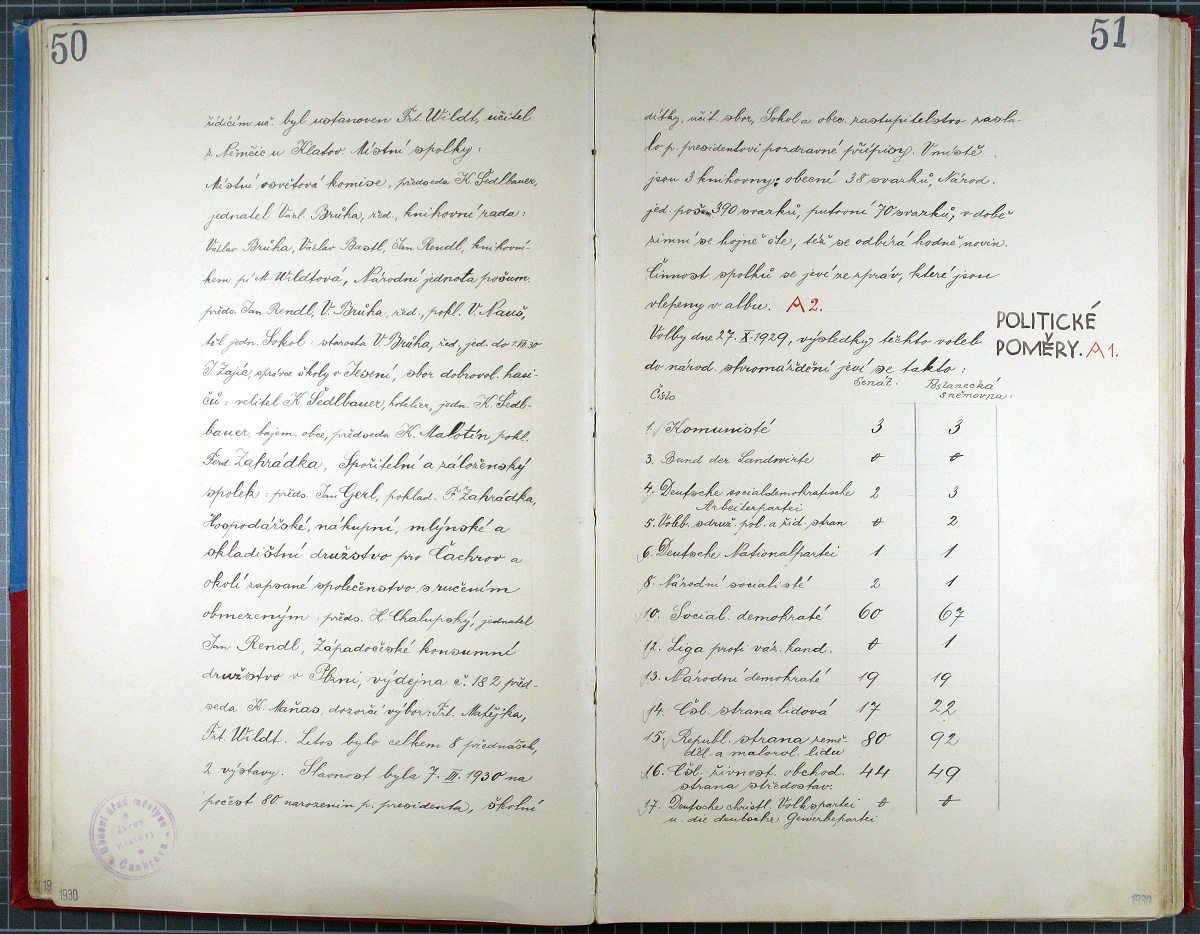 50
řídícím uč. byl ustanoven Frt. Wildt, učitel
z Němčic u Klatov. Místní spolky:
Místní osvětová komise, předseda K. Sedlbauer,
jednatel Václ. Brůha, řed., knihovní rada:
Václav Brůha, Václav Bastl, Jan Rendl, knihovní-
kem Wildtová, Národní jednota pošum.
předs. Jan Rendl, V. Brůha, řed., pokl. V. Nauš,
těl. jedn. Sokol: starosta V. Brůha, řed., jed. do 1.
J. Zajíc, správce školy v Jesení, sbor dobrovol. hasi-
čů: velitel K. Sedlbauer, hotelier, jedn. K. Sedl-
bauer, tajem. obce, předseda K. Malotín, pokl.
Ferd. Zahrádka, Spořitelní a záloženský
spolek: předs. Jan Gerl, poklad. F. Zahrádka,
Hospodářské, nákupní, mlýnské a
skladištní družstvo pro Čachrov a
okolí zapsané společenstvo s ručením
obmezeným: předs. H. Chalupský, jednatel
Jan Rendl, Západočeské konsumní
družstvo v Plzni, výdejna č. 182 před-
seda K. Maňas, dozorčí výbor: Frt. Matějka,
Frt. Wildt. Letos bylo celkem 8 přednášek,
2 výstavy. Slavnost byla 7. III. 1930 na
počest 80. narozenin p. presidenta, školní
Obecní úřad městyse
Čachrova
19
1930
51
dítky, učit. sbor, Sokol a obec. zastupitelstvo zasla-
lo p. presidentovi pozdravné přípisy. V místě
jsou 3 knihovny: obecní 38 svazků, Národ.
jed. pošum. 390 svazků, putovní 70 svazků, v době
zimní se hojně čte, též se odbírá hodně novin.
Činnost spolků se jeví ze zpráv, které jsou
vlepeny v albu. A2.
POLITICKÉ
POMĚRY. A1.
Volby dne 27. X. 1929, výsledky těchto voleb
do národ. shromáždění jeví se takto:
Číslo Senát. Poslanecká sněmovna:
1. Komunisté 3 3
3. Bund der Landwirte 0 0
4. Deutsche socialdemokratische 2 3
Arbeiterpartei
5. Voleb. sdruž. pol. a žid. stran 0 2
6. Deutsche Nationalpartei 1 1
8. Národní socialisté 2 1
10. Social. demokraté 60 67
12. Liga proti váz. kand. 0 1
13. Národní demokraté 19 19
14. Čsl. strana lidová 17 22
15. Republ. strana země- 80 92
děl. a malorol. lidu
16. Čsl. živnost. obchod. 44 49
strana středostav.
17. Deutsche christl. Volkspartei 0 0
u. die deutsche Gewerbepartei
1930